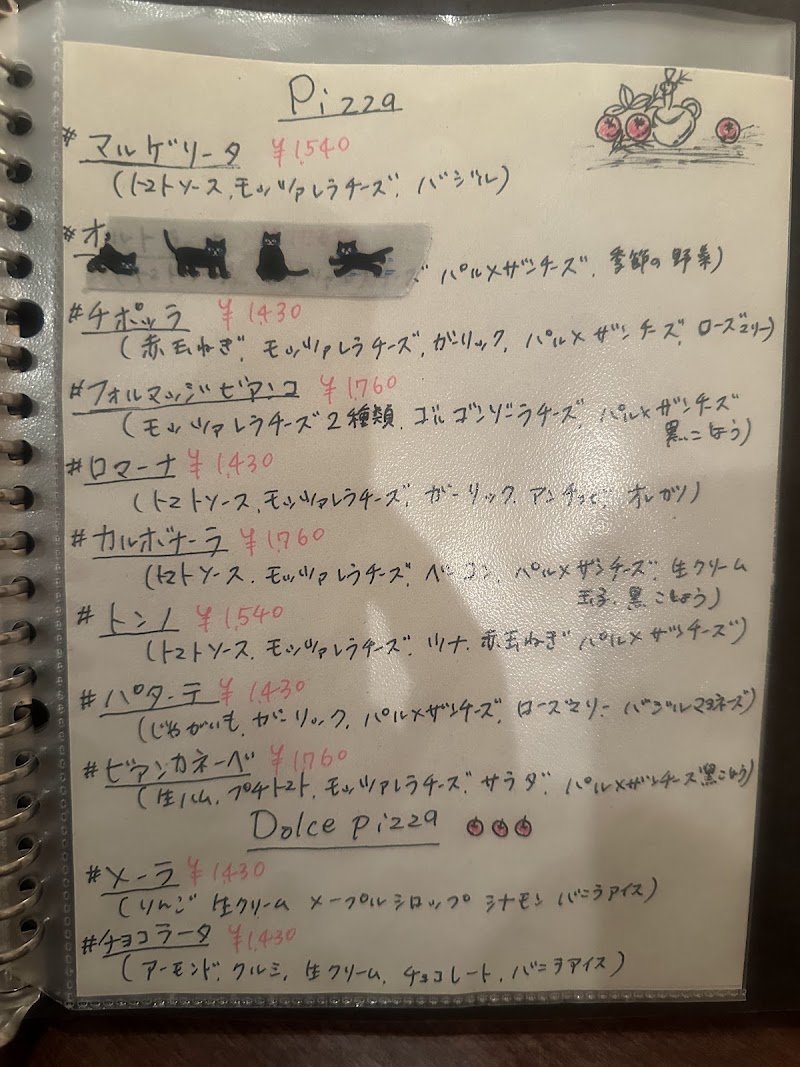 Pizza
# マルゲリータ ¥1,540
(トマトソース、モッツァレラチーズ、バジル)
# オ
ズ パルメザンチーズ、季節の野菜)
# チポッラ ¥1,430
(赤玉ねぎ、モッツァレラチーズ、ガーリック、パルメザンチーズ、ローズマリー)
# フォルマッジビアンコ ¥1,760
(モッツァレラチーズ2種類、ゴルゴンゾーラチーズ、パルメザンチーズ
黒こしょう)
# ロマーナ ¥1,430
(トマトソース、モッツァレラチーズ、ガーリック、アンチョビ、オレガノ)
# カルボナーラ ¥1,760
(トマトソース、モッツァレラチーズ、ベーコン、パルメザンチーズ、生クリーム
玉子、黒こしょう)
# トンノ ¥1,540
(トマトソース、モッツァレラチーズ、ツナ、赤玉ねぎ パルメザンチーズ)
# パターテ ¥1,430
(じゃがいも、ガーリック、パルメザンチーズ、ローズマリー バジルマヨネーズ)
# ビアンカネーベ ¥1,760
(生ハム、プチトマト、モッツァレラチーズ、サラダ、パルメザンチーズ 黒こしょう)
Dolce pizza
# メーラ ¥1,430
(りんご 生クリーム メープルシロップ シナモン バニラアイス)
# チョコラータ ¥1,430
(アーモンド、クルミ、生クリーム、チョコレート、バニラアイス)